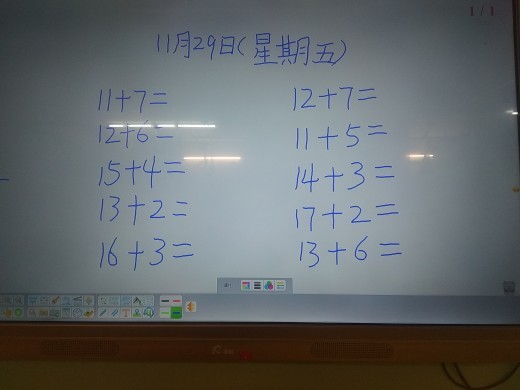 1/1
11月29日(星期五)
11+7= 12+7=
12+6= 11+5=
15+4= 14+3=
13+2= 17+2=
16+3= 13+6=